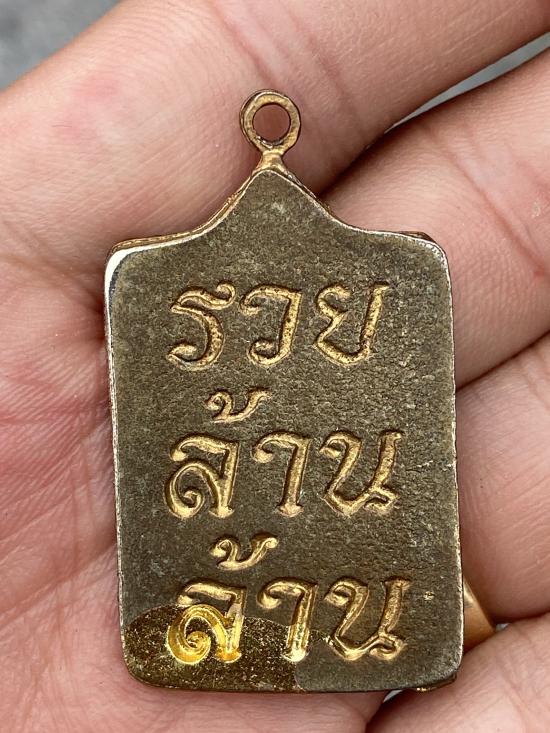 รวย
ล้าน
ล้าน